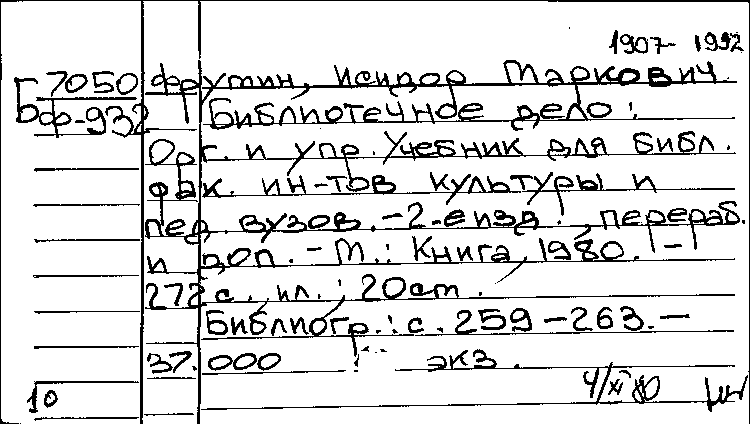 1907-1992
Б 7050 Фрумин, Исидор Маркович
ф-932 Библиотечное дело:
Орг. и упр. Учебник для библ.
фак. ин-тов культуры и
пед. вузов. - 2-е изд., перераб.
и доп. - М.: Книга, 1980. -
272 с., ил.; 20 см.
Библиогр.: с. 259-263. -
37.000 экз.
4/XI 80
10